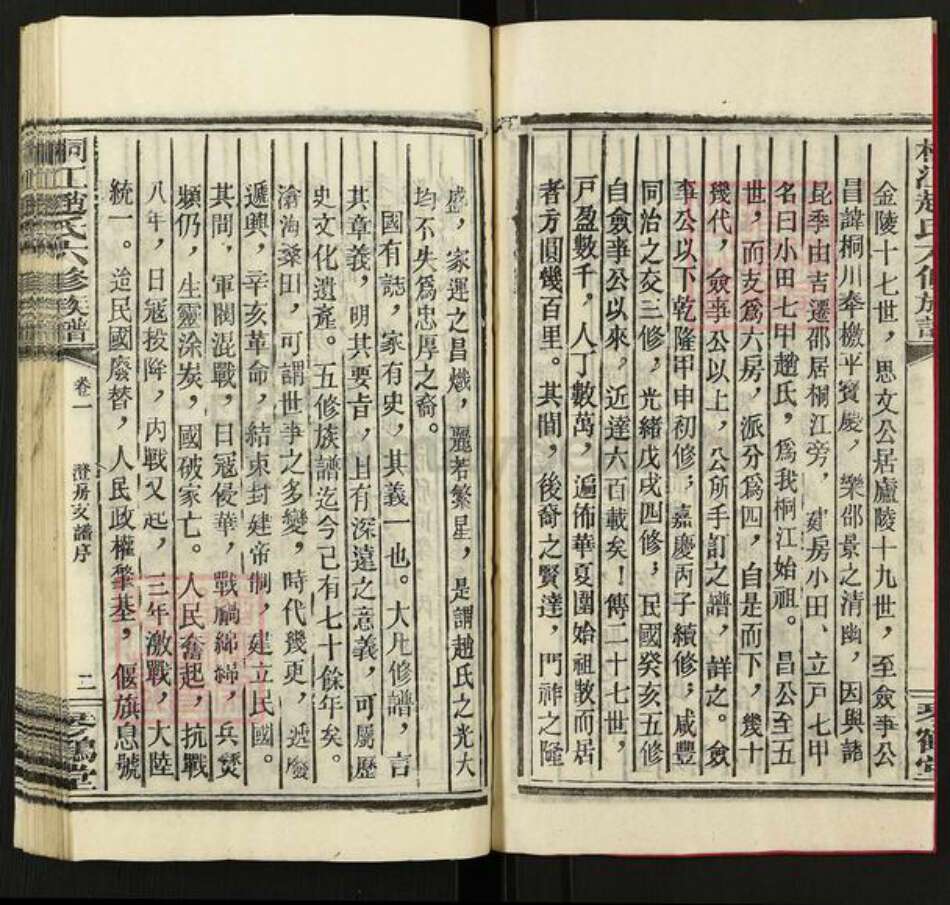 金陵十七世，思文公居廬陵十九世，至僉事公
昌諱桐川奉檄平寳慶，樂邵景之清幽，因與諸
昆季由吉遷邵居桐江旁，建房小田、立戸七甲
名曰小田七甲趙氏，爲我桐江始祖。昌公至五
世，而支爲六房，派分爲四，自是而下，幾十
幾代，僉事公以上，公所手訂之譜，詳之。僉
事公以下乾隆甲申初修；嘉慶丙子續修；咸豐
同治之交三修；光緒戊戌四修；民國癸亥五修
自僉事公以來，近達六百載矣！傳二十七世，
戸盈數千，人丁數萬，遍佈華夏圍始祖敖而居
者方圓幾百里。其間，後裔之賢達，門祚之隆
盛，家運之昌熾，麗若繁星，是謂趙氏之光大
均不失爲忠厚之裔。
國有誌，家有史，其義一也。大凡修譜，言
其章義，明其要旨，且有深遠之意義，可屬歷
史文化遺産。五修族譜迄今己有七十餘年矣。
滄海桑田，可謂世事之多變，時代幾更，遞廢
遞興，辛亥革命，結束封建帝制，建立民國。
其間，軍閥混戰，日冦侵華，戰禍綿綿，兵燹
頻仍，生靈涂炭，國破家亡。人民奮起，抗戰
八年，日冦投降，内戰又起，三年激戰，大陸
統一。迨民國廢替，人民政權肇基，偃旗息號
桐江趙氏六修族譜
卷一
澄房支譜序
二
琴鶴堂